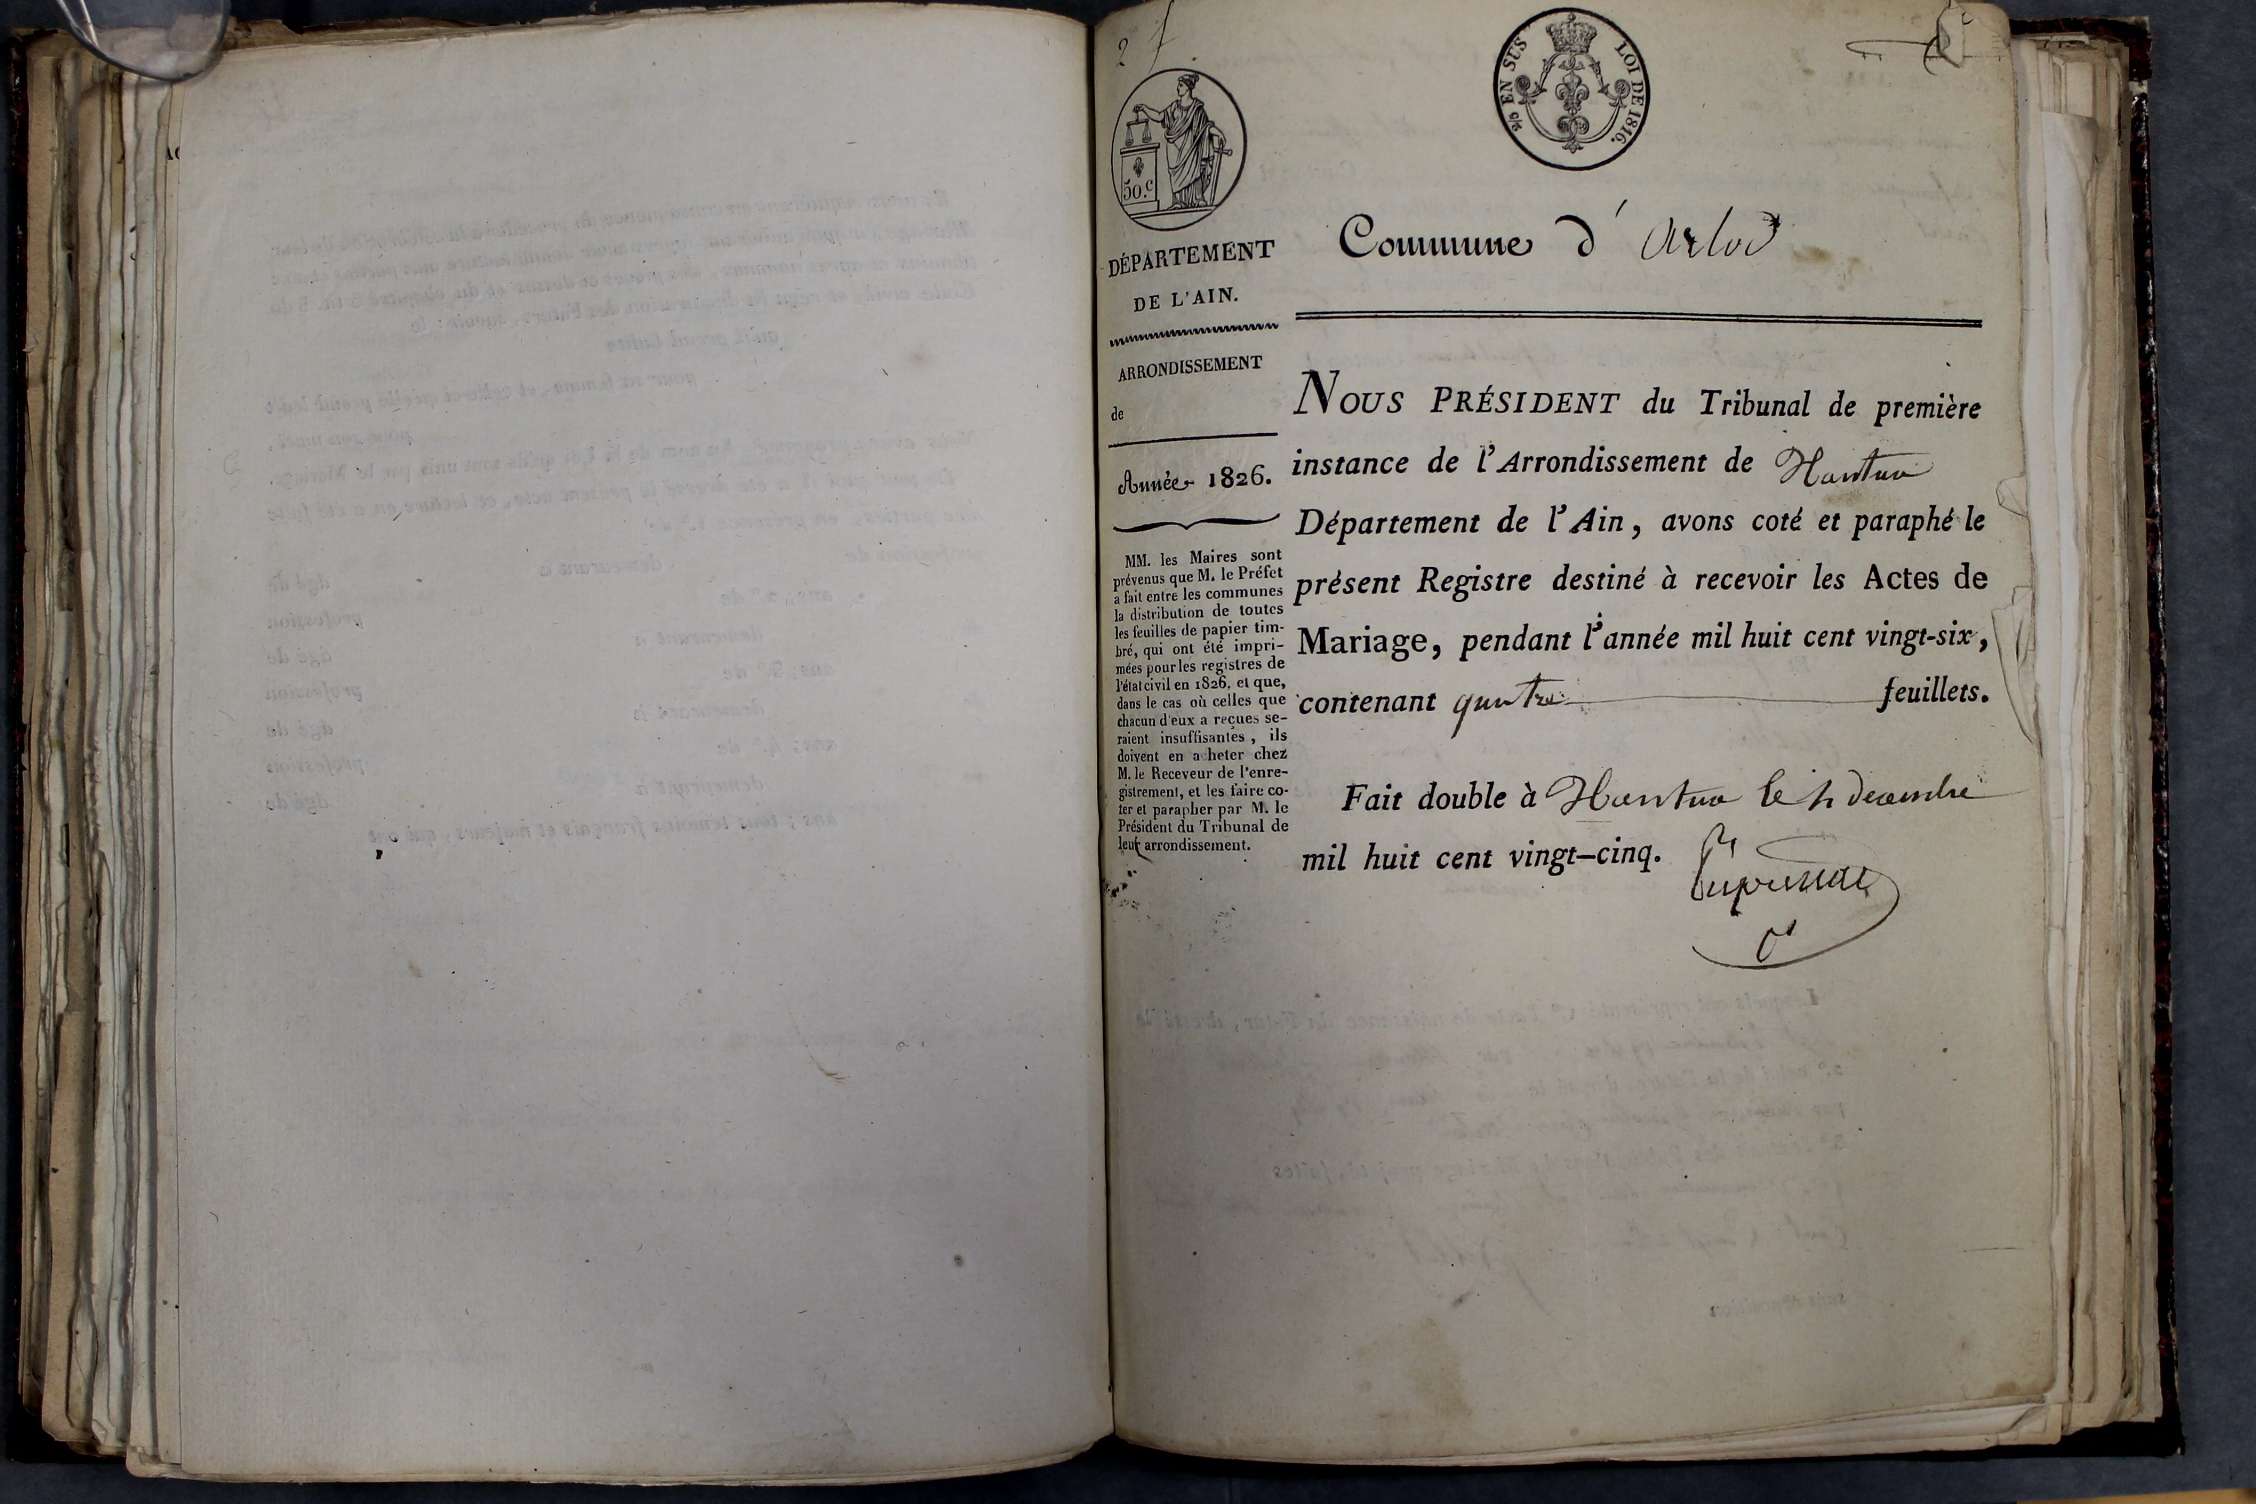 2
50.c
2/5 EN SUS LOI DE 1816.
DÉPARTEMENT
DE L'AIN.
ARRONDISSEMENT
de
Année 1826.
MM. les Maires sont
prévenus que M. le Préfet
a fait entre les communes
la distribution de toutes
les feuilles de papier tim-
bré, qui ont été impri-
mées pour les registres de
l'état civil en 1826, et que,
dans le cas où celles que
chacun d'eux a reçues se-
raient insuffisantes, ils
doivent en acheter chez
M. le Receveur de l'enre-
gistrement, et les faire co-
ter et parapher par M. le
Président du Tribunal de
leur arrondissement.
Commune d' Arlod
NOUS PRÉSIDENT du Tribunal de première
instance de l'Arrondissement de Nantua
Département de l'Ain, avons coté et paraphé le
présent Registre destiné à recevoir les Actes de
Mariage, pendant l'année mil huit cent vingt-six,
contenant quatre feuillets.
Fait double à Nantua le décembre
mil huit cent vingt-cinq.